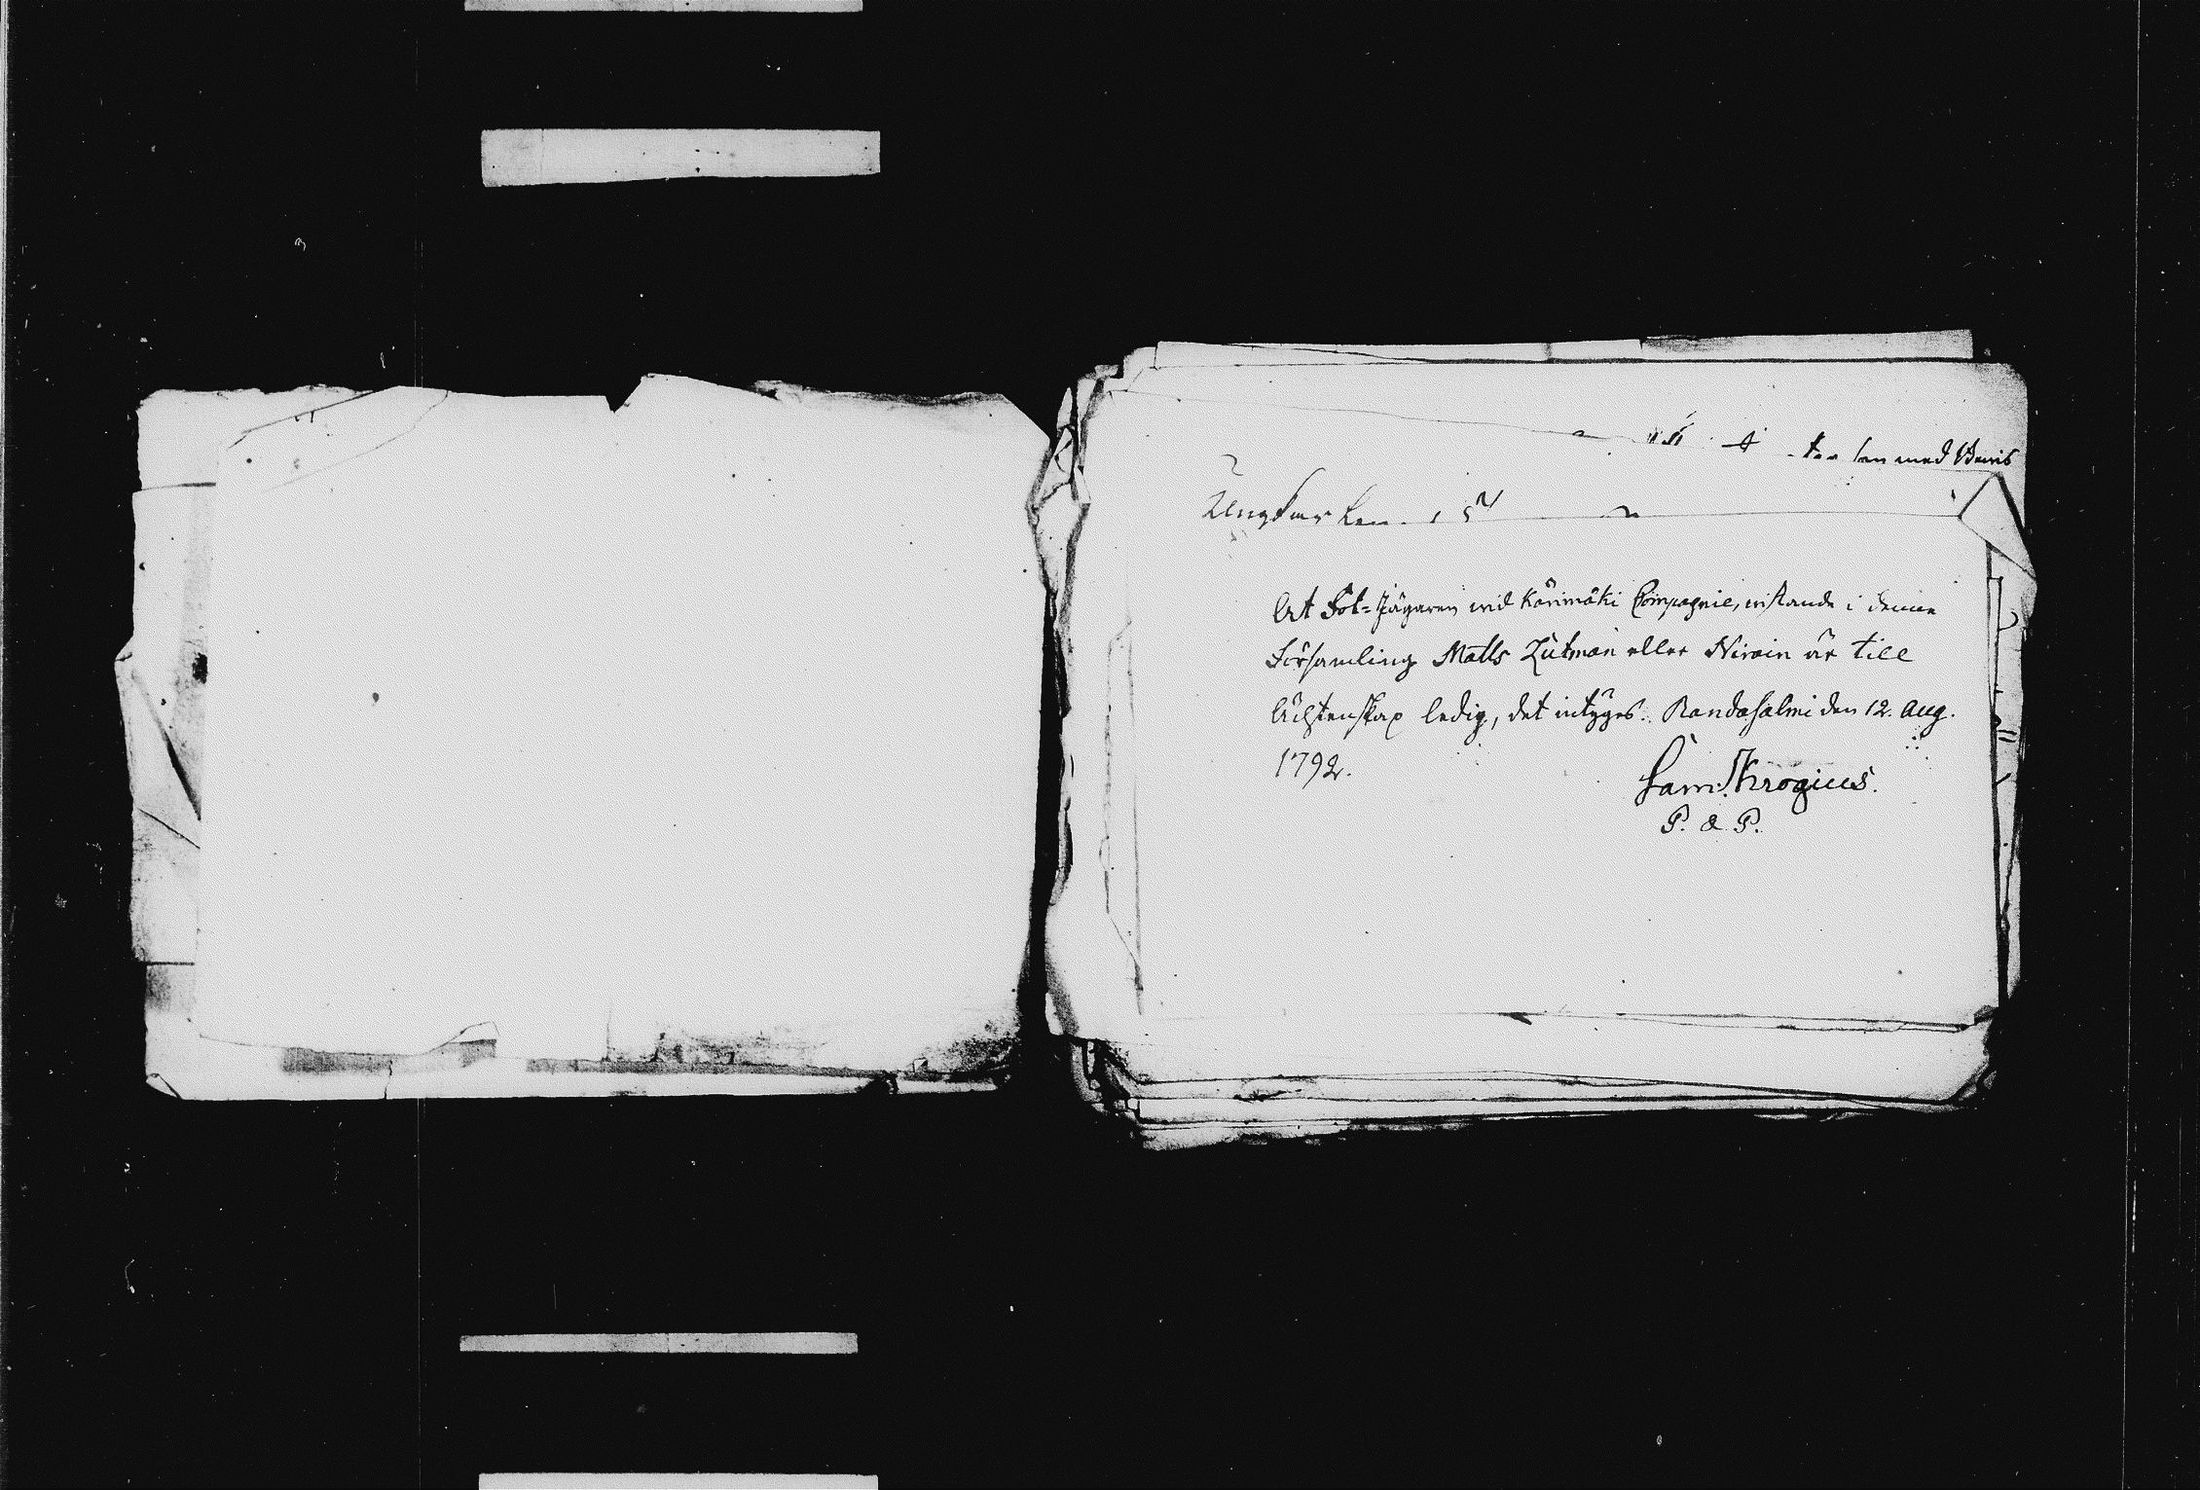 han med Bewis
Ungkarlen
At Fot-Jägaren vid Kärimäki Compagnie, vistande i denne
Församling Matts Lutman eller Nirain är till
Ächtenskap ledig, det intÿges. Randasalmi den 12. Aug.
1792.
Sam: Krogius.
P. & P.